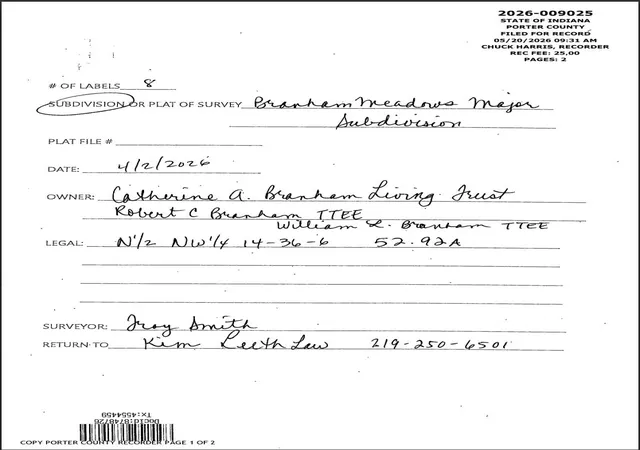 2026-009025
STATE OF INDIANA
PORTER COUNTY
FILED FOR RECORD
05/20/2026 09:31 AM
CHUCK HARRIS, RECORDER
REC FEE: 25.00
PAGES: 2
# OF LABELS 8
SUBDIVISION OR PLAT OF SURVEY Branham Meadows Major
Subdivision
PLAT FILE #
DATE: 4/2/2026
OWNER: Catherine A. Branham Living Trust
Robert C Branham TTEE
William L. Branham TTEE
LEGAL: N1/2 NW1/4 14-36-6 52.92A
SURVEYOR: Troy Smith
RETURN TO Kim Leeth Law 219-250-6501
Tx:4554459
DocId:8748726
COPY PORTER COUNTY RECORDER PAGE 1 OF 2